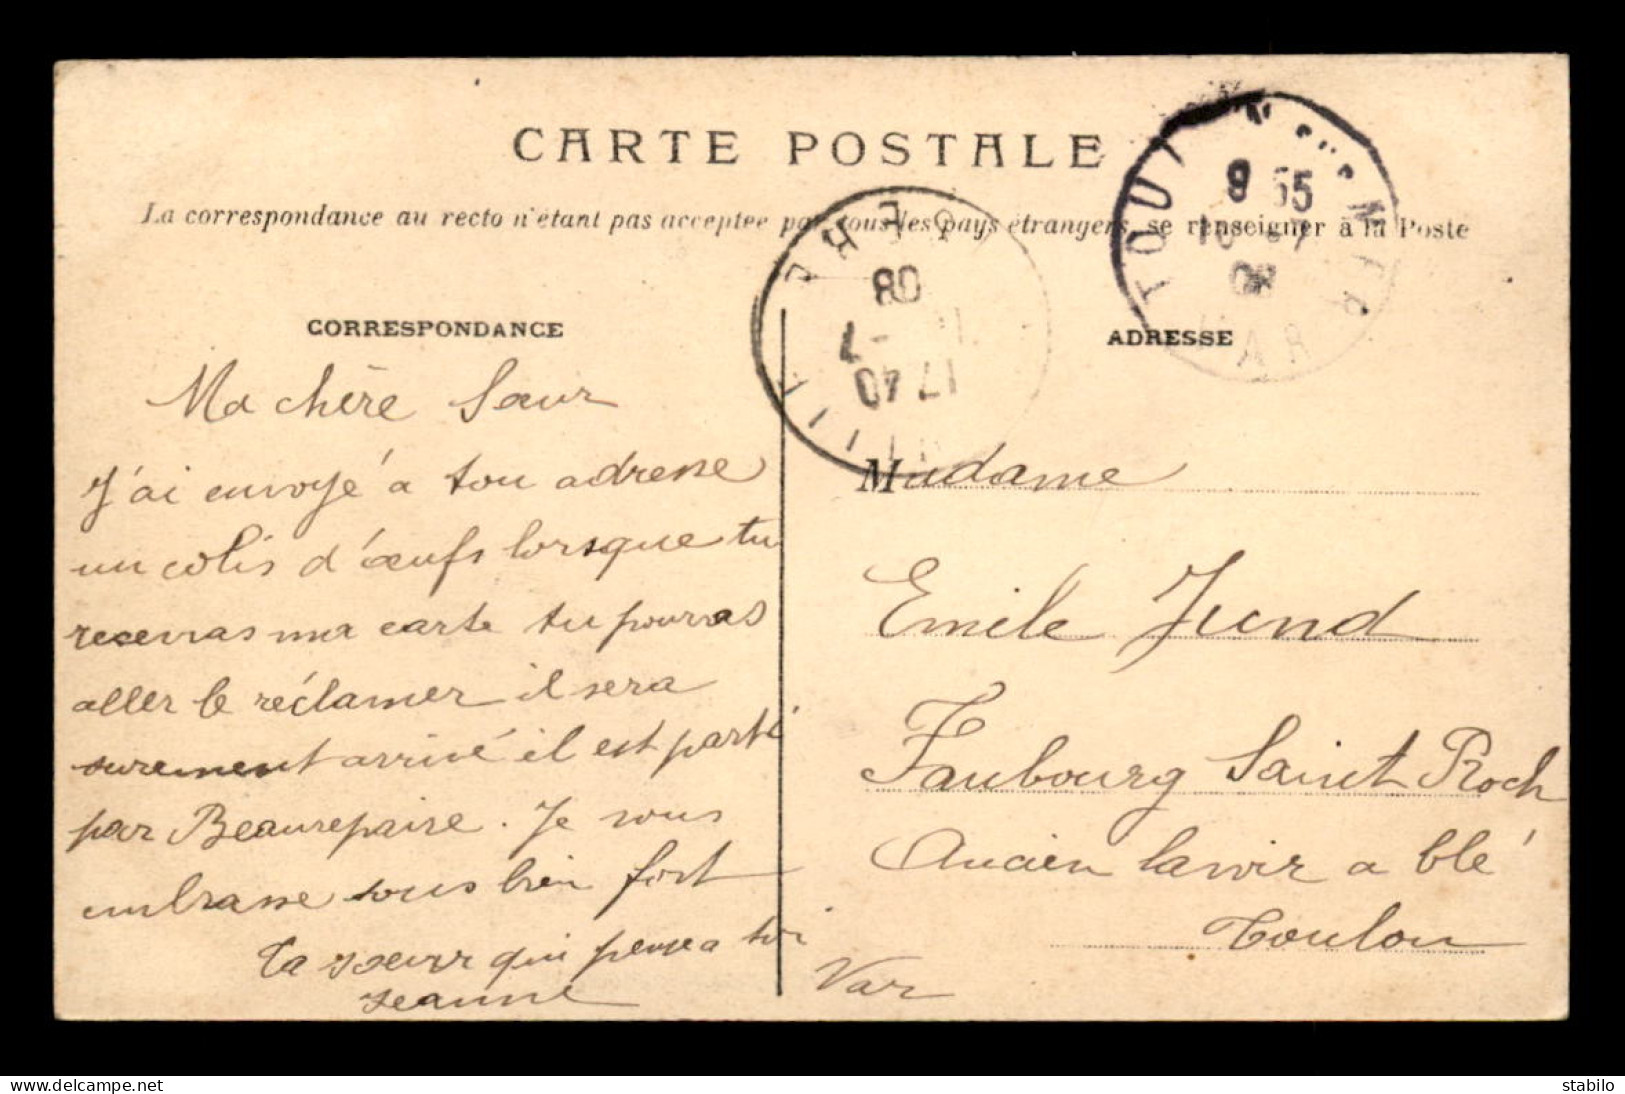 CARTE POSTALE
La correspondance au recto n'étant pas acceptée par tous les pays étrangers, se renseigner à la Poste
9 55
08
08
-7
17 40
VAR
CORRESPONDANCE
ADRESSE
Ma chère Sœur
J'ai envoyé a ton adresse
un colis d'œufs lorsque tu
recevras ma carte tu pourras
aller le réclamer il sera
surement arrivé il est parti
par Beaurepaire. Je vous
embrasse tous bien fort
Ta sœur qui pense a toi
Jeanne
Madame
Emile Jund
Faubourg Saint Roch
Ancien lavoir a blé
Toulon
Var
delcampe.net
stabilo